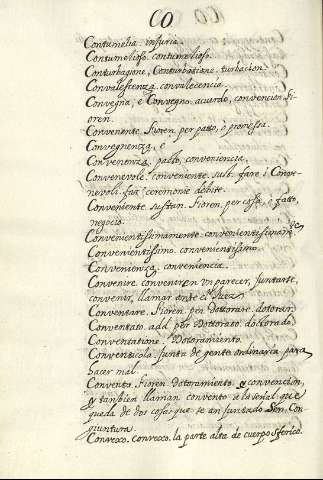 CO
Contumelia. injuria.
Contumelioso. contumelioso.
Conturbagione, Conturbatione. turbacion.
Convalescenza. convalecencia
Convegna, e Convegno. acuerdo, convencion. Fi-
oren.
Convenente. Fioren. per patto, o promessa.
Convegnenza, e
Convenenza. pacto, conveniencia.
Convenevole. conveniente. sust. fare i Conve-
nevoli. faz. ceremonie debite.
Conveniente sustan. Fioren. per cossa, o fatto,
negocio.
Convenientissimamente convenientissimam.te
Convenientissimo. convenientissimo.
Convenienza. conveniencia.
Convenire. convenir en un parecer, juntarse,
convenir, llamar ante el Juez.
Conventare. Fioren. per Dotorare. dotorar.
Conventato. add. per Dottorato. doctorado.
Conventatione. Dotoramiento.
Conventicola. junta de gente ordinaria para
hacer mal.
Convento. Fioren. dotoramiento. y convencion,
y tanbien llaman convento se la señal que
queda de dos cosas que se an juntado. Con-
giuntura.
Convexo. convexo. la parte alta de cuerpo sferico.